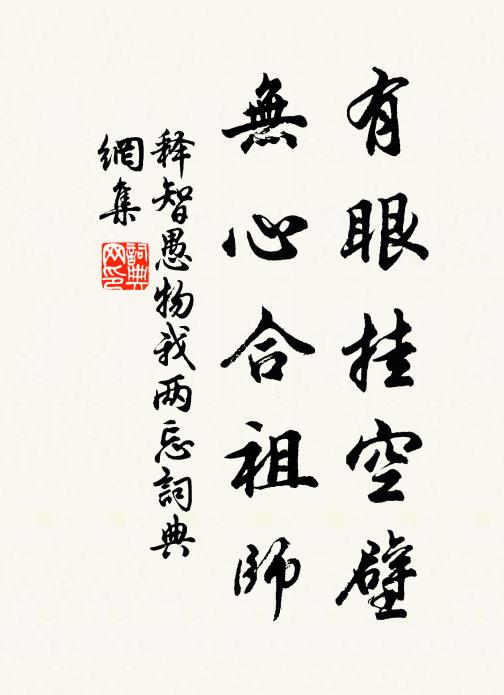 有眼挂空壁
無心合祖師
释智愚物我两忘詞典
網集
詞典
网印